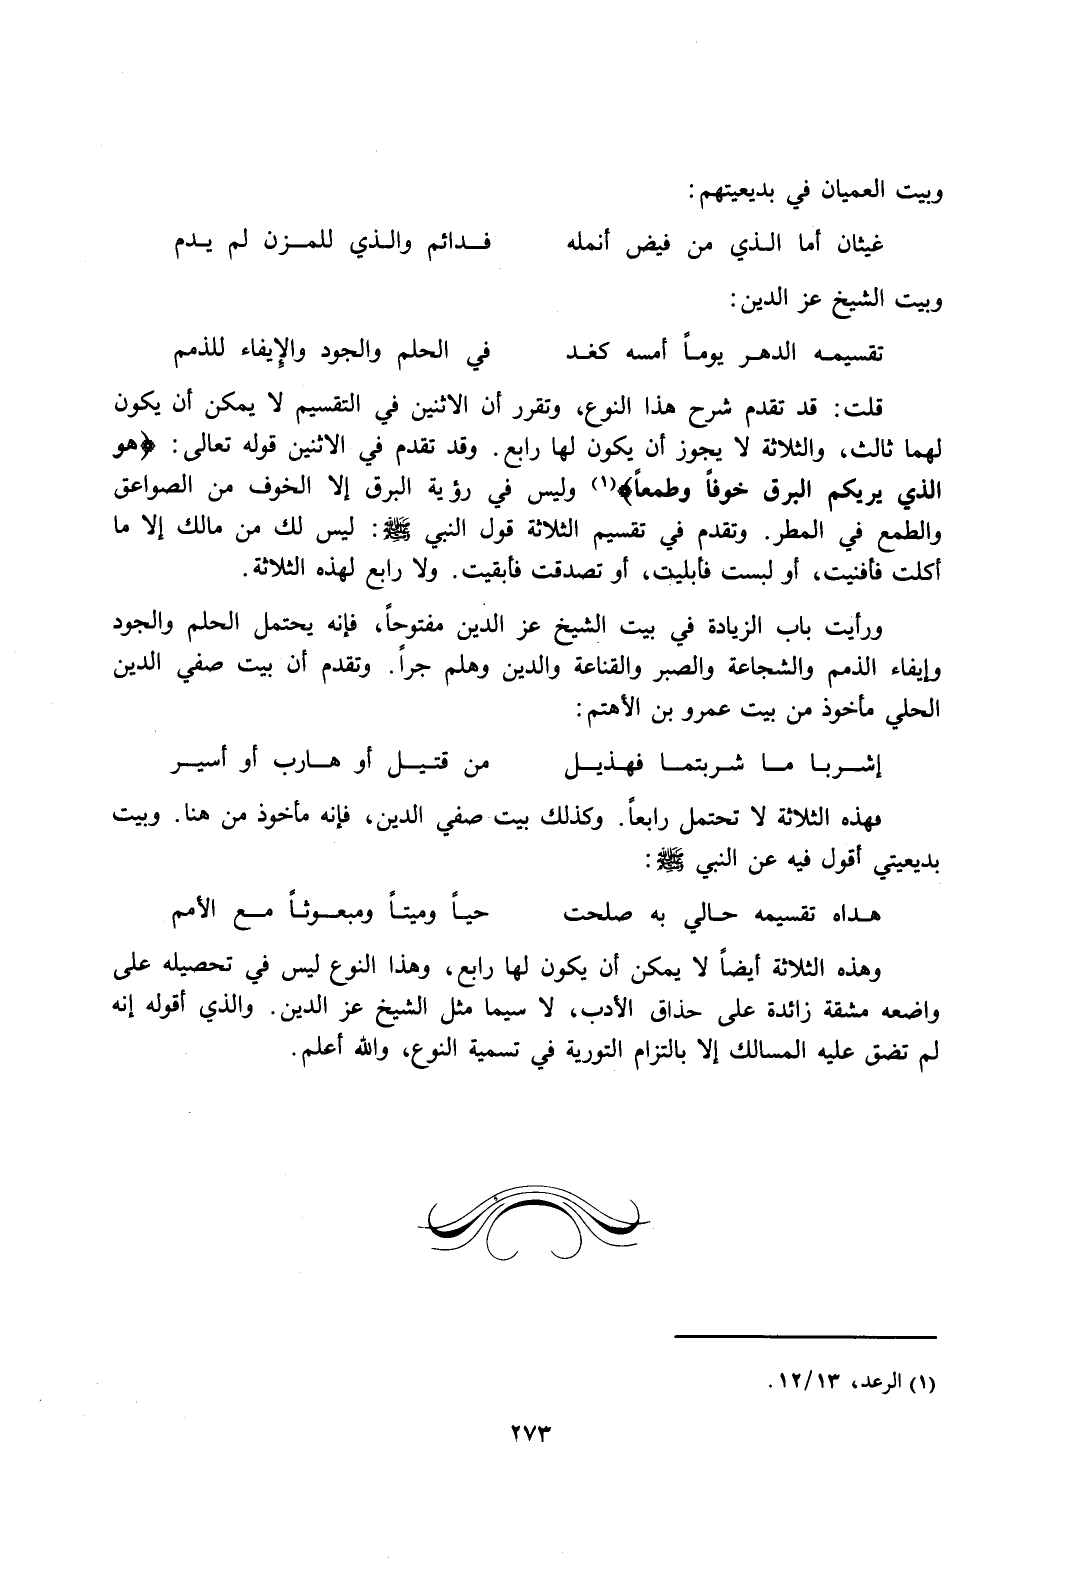 وبيت العميان في بديعيتهم:
غيثان أما الـذي من فيض أنمله فـدائم والـذي للمـزن لم يـدم
وبيت الشيخ عز الدين:
تقسيمـه الدهـر يومـاً أمسه كغـد في الحلم والجود والإيفاء للذمم
قلت: قد تقدم شرح هذا النوع، وتقرر أن الاثنين في التقسيم لا يمكن أن يكون
لهما ثالث، والثلاثة لا يجوز أن يكون لها رابع. وقد تقدم في الاثنين قوله تعالى: ﴿هو
الذي يريكم البرق خوفاً وطمعاً﴾(١) وليس في رؤية البرق إلا الخوف من الصواعق
والطمع في المطر. وتقدم في تقسيم الثلاثة قول النبي ﷺ: ليس لك من مالك إلا ما
أكلت فأفنيت، أو لبست فأبليت، أو تصدقت فأبقيت. ولا رابع لهذه الثلاثة.
ورأيت باب الزيادة في بيت الشيخ عز الدين مفتوحاً، فإنه يحتمل الحلم والجود
وإيفاء الذمم والشجاعة والصبر والقناعة والدين وهلم جراً. وتقدم أن بيت صفي الدين
الحلي مأخوذ من بيت عمرو بن الأهتم:
إشـربـا مـا شـربتمـا فهذيـل من قتيـل أو هـارب أو أسيـر
فهذه الثلاثة لا تحتمل رابعاً. وكذلك بيت صفي الدين، فإنه مأخوذ من هنا. وبيت
بديعيتي أقول فيه عن النبي ﷺ:
هـداه تقسيمه حـالي به صلحت حيـاً وميتـاً ومبعـوثـاً مـع الأمم
وهذه الثلاثة أيضاً لا يمكن أن يكون لها رابع، وهذا النوع ليس في تحصيله على
واضعه مشقة زائدة على حذاق الأدب، لا سيما مثل الشيخ عز الدين. والذي أقوله إنه
لم تضق عليه المسالك إلا بالتزام التورية في تسمية النوع، والله أعلم.
(١) الرعد، ١٢/١٣.
٢٧٣